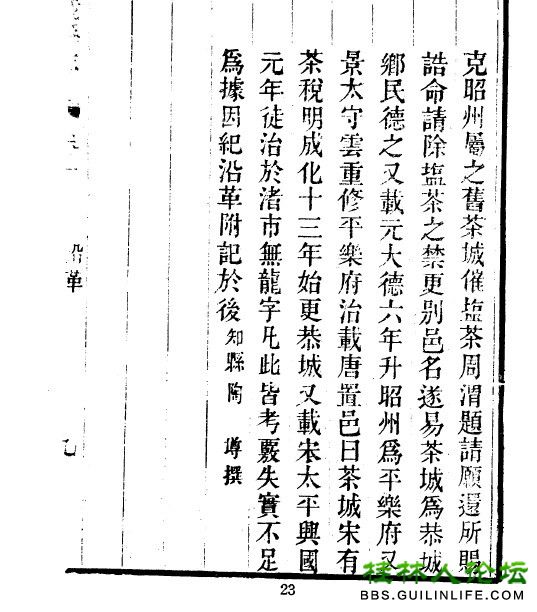 克昭州屬之舊茶城催塩茶周渭題請願還所賜
誥命請除塩茶之禁更别邑名遂易茶城爲恭城
鄉民德之又載元大德六年升昭州爲平樂府又
景太守雲重修平樂府治載唐置邑曰茶城宋有
茶稅明成化十三年始更恭城又載宋太平興國
元年徒治於渚市無龍字凡此皆考覈失實不足
爲據因紀沿革附記於後 知縣陶 墫撰
沿革
23
桂林人论坛
BBS.GUILINLIFE.COM